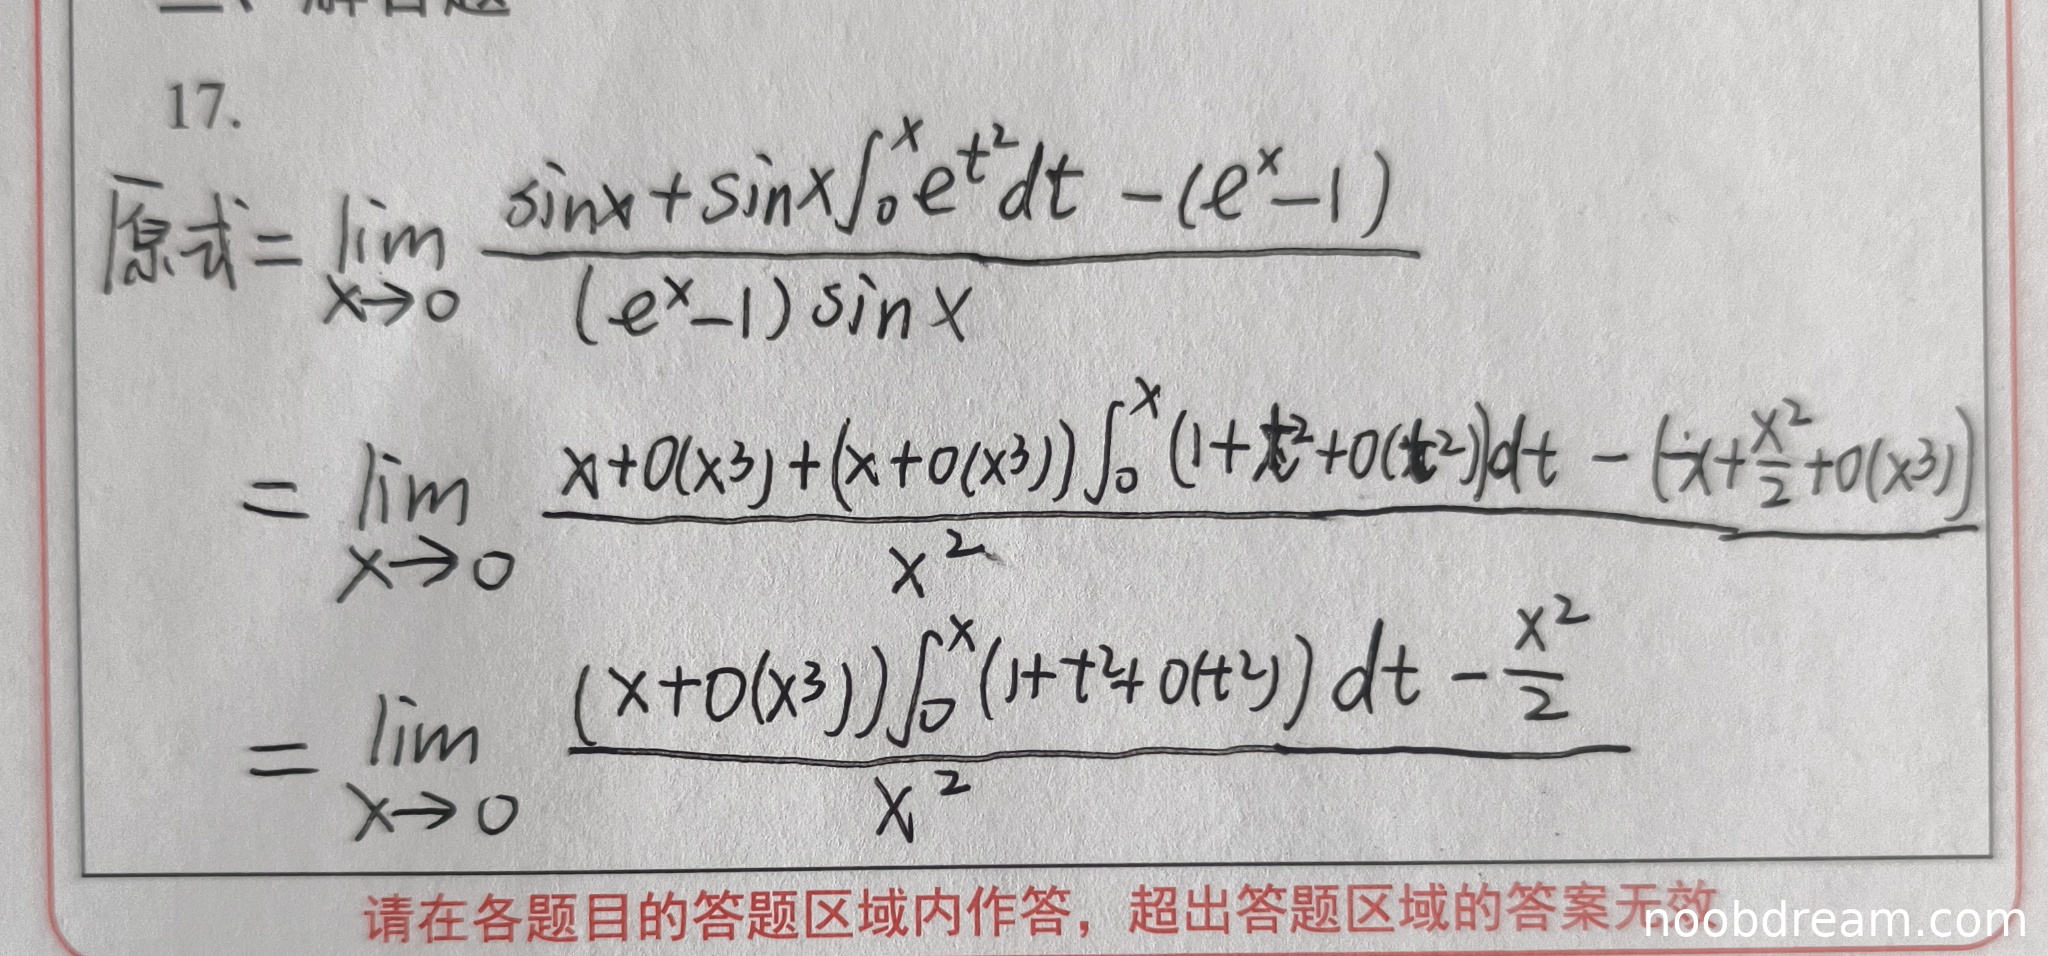 17.
原式 = lim x→0 (sinx + sinx∫₀ˣ e^(t²) dt − (eˣ−1)) / ((eˣ−1) sin x)
= lim x→0 (x+o(x³) + (x+o(x³))∫₀ˣ (1+t²+o(t²))dt − (x+x²/2+o(x³))) / x²
= lim x→0 ((x+o(x³))∫₀ˣ (1+t²+o(t²)) dt − x²/2) / x²
请在各题目的答题区域内作答，超出答题区域的答案无效
noobdream.com